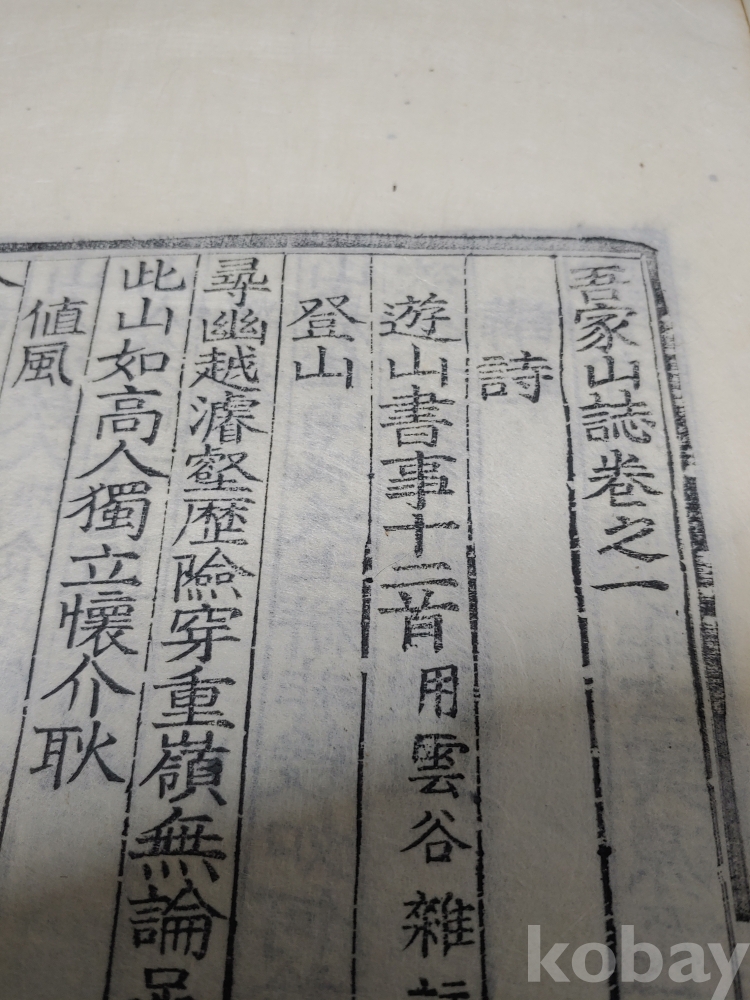 吾家山誌卷之一
詩
遊山書事十二首 用雲谷雜
登山
尋幽越濬壑歷險穿重嶺無論
此山如高人獨立懷介耿
値風
kobay